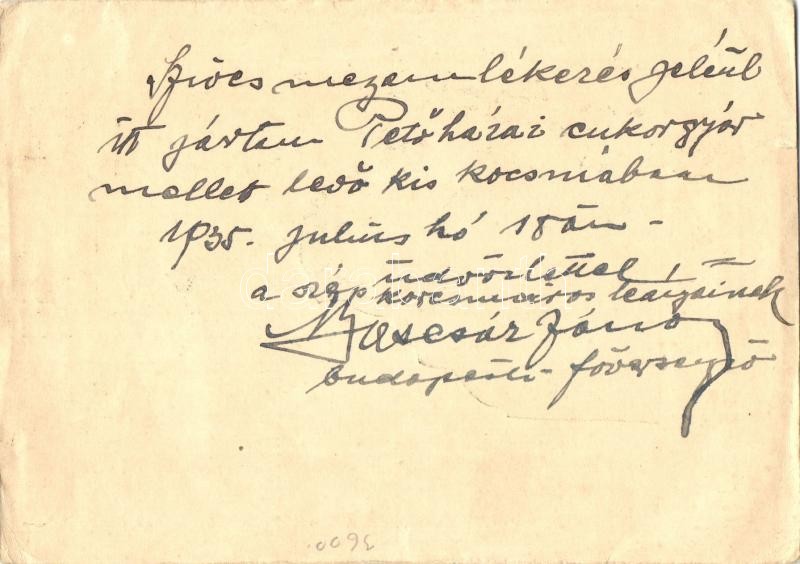 Szivcs mezamlékezés jeléűl
itt jártam Petőházai cukorgyár
mellet levő kis kocsmában
1935. julius hó 18án -
üdvözlettel
a szép korcsmáros leányainek
János
budapesti - főversenyző
3600.